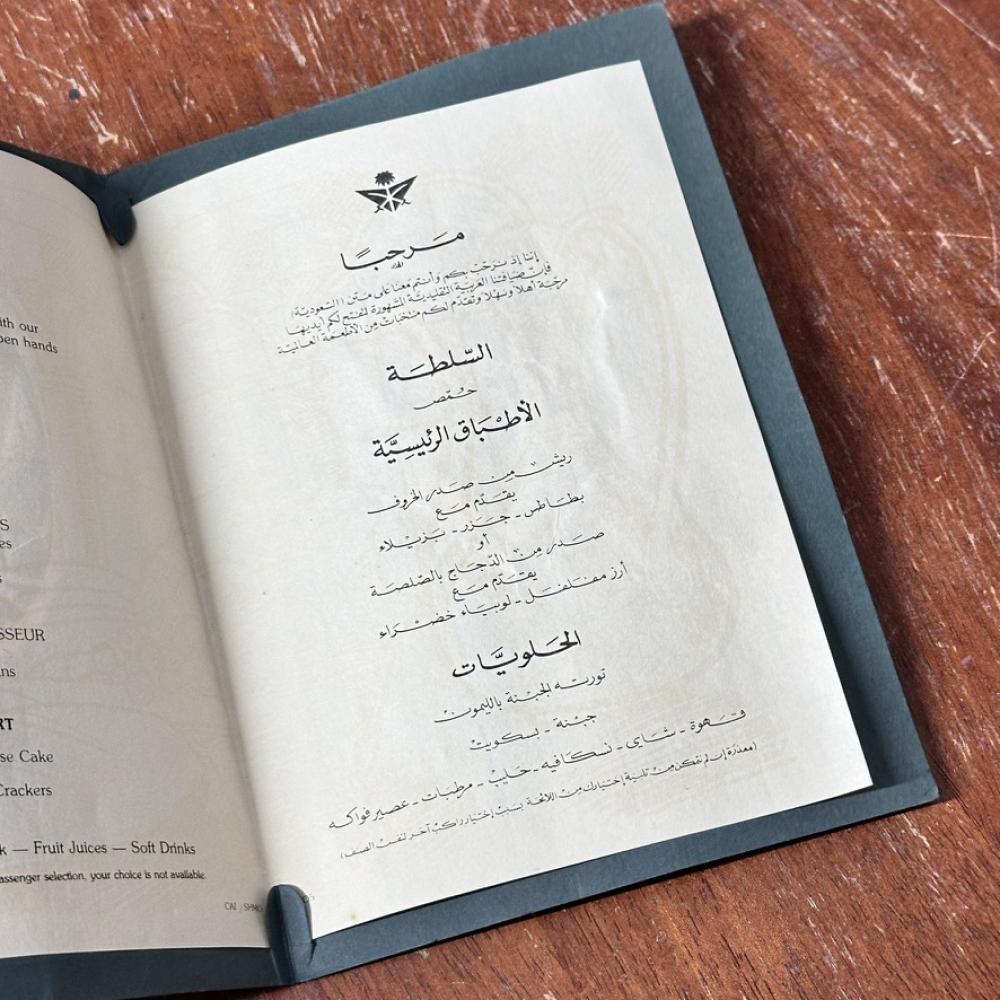 ith our
pen hands
S
es
s
SSEUR
ns
RT
se Cake
Crackers
k — Fruit Juices — Soft Drinks
assenger selection, your choice is not available.
CAI / SHMO
مَرحبًا
إننا إذ نرَحّبْ بكم وَأنتم مَعنا عَلى مَتن (السّعودية)
فإن ضيافتنا العَربيّة التقليديّة المشهورة لتفتح لكم أيديها
مرحّبة أهلاً وَسَهلاً وَنقدّم لكم منتخبات مِن الأطعمَة العالمية
السّلطَة
حُمّص
الأطبَاق الرئيسِيَّة
ريش مِن صَدر الخروف
يقدّم مَع
بطاطس - جَزر - بَزيلاء
أو
صَدر مِن الدّجاج بالصّلصَة
يقدّم مَع
أرز مفلفل - لوبيَاء خضرَاء
الحَلويَّات
تورته الجبْنة بالليمون
جبْنة - بسكويت
قهوة - شاي - نسكافيه - حليب - مرطبات - عصير فواكه
(معذرَة إن لم نتمكن مِن تلبية إختيارك مِن اللائحة بسبب إختيار راكب آخر لنفس الصنف)